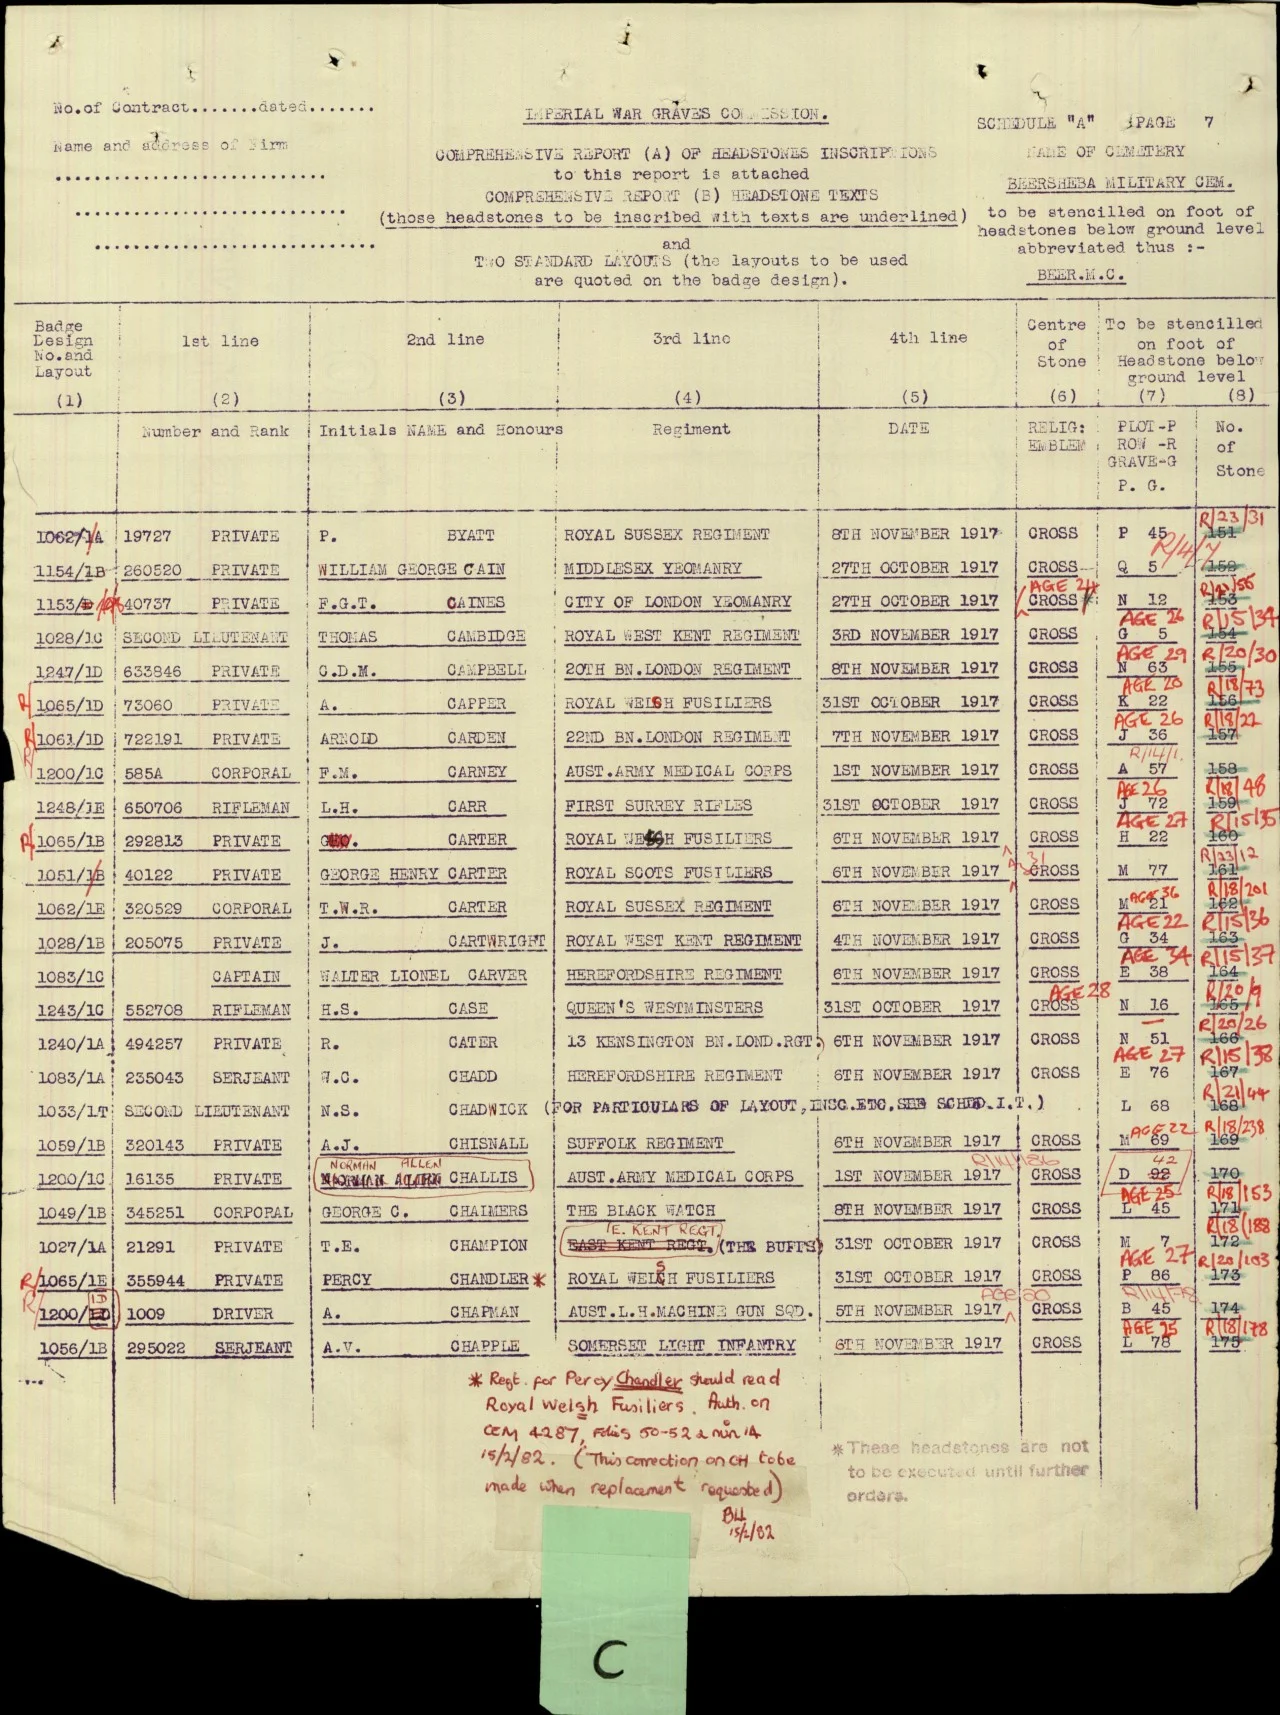 No.of Contract.......dated.......
Name and address of Firm
IMPERIAL WAR GRAVES COMMISSION.
COMPREHENSIVE REPORT (A) OF HEADSTONES INSCRIPTIONS
to this report is attached
COMPREHENSIVE REPORT (B) HEADSTONE TEXTS
(those headstones to be inscribed with texts are underlined)
and
TWO STANDARD LAYOUTS (the layouts to be used
are quoted on the badge design).
SCHEDULE "A" PAGE 7
NAME OF CEMETERY
BEERSHEBA MILITARY CEM.
to be stencilled on foot of
headstones below ground level
abbreviated thus :-
BEER.M.C.
Badge Design No.and Layout (1) 1st line (2) 2nd line (3) 3rd line (4) 4th line (5) Centre of Stone (6) To be stencilled on foot of Headstone below ground level (7) (8)
Number and Rank Initials NAME and Honours Regiment DATE RELIG: EMBLEM PLOT-P ROW -R GRAVE-G P. G. No. of Stone
R/23/31
1062/1A 19727 PRIVATE P. BYATT ROYAL SUSSEX REGIMENT 8TH NOVEMBER 1917 CROSS P 45 151
R/4/7
1154/1B 260520 PRIVATE WILLIAM GEORGE CAIN MIDDLESEX YEOMANRY 27TH OCTOBER 1917 CROSS Q 5 152
AGE 24
1153/ 40737 PRIVATE F.G.T. CAINES CITY OF LONDON YEOMANRY 27TH OCTOBER 1917 CROSS N 12 153
AGE 26 R/15/34
1028/1C SECOND LIEUTENANT THOMAS CAMBIDGE ROYAL WEST KENT REGIMENT 3RD NOVEMBER 1917 CROSS G 5 154
AGE 29 R/20/30
1247/1D 633846 PRIVATE C.D.M. CAMPBELL 20TH BN.LONDON REGIMENT 8TH NOVEMBER 1917 CROSS N 63 155
AGE 20 R/18/73
R/ 1065/1D 73060 PRIVATE A. CAPPER ROYAL WELSH FUSILIERS 31ST OCTOBER 1917 CROSS K 22 156
AGE 26 R/18/22
R/ 1061/1D 722191 PRIVATE ARNOLD CARDEN 22ND BN.LONDON REGIMENT 7TH NOVEMBER 1917 CROSS J 36 157
R/14/1.
R/ 1200/1C 585A CORPORAL F.M. CARNEY AUST.ARMY MEDICAL CORPS 1ST NOVEMBER 1917 CROSS A 57 158
AGE 26 R/18/48
1248/1E 650706 RIFLEMAN L.H. CARR FIRST SURREY RIFLES 31ST OCTOBER 1917 CROSS J 72 159
AGE 27 R/15/35
R/ 1065/1B 292813 PRIVATE G CARTER ROYAL WELSH FUSILIERS 6TH NOVEMBER 1917 CROSS H 22 160
31 R/23/12
1051/1B 40122 PRIVATE GEORGE HENRY CARTER ROYAL SCOTS FUSILIERS 6TH NOVEMBER 1917 CROSS M 77 161
AGE 36 R/18/201
1062/1E 320529 CORPORAL T.W.R. CARTER ROYAL SUSSEX REGIMENT 6TH NOVEMBER 1917 CROSS M 21 162
AGE 22 R/15/36
1028/1B 205075 PRIVATE J. CARTWRIGHT ROYAL WEST KENT REGIMENT 4TH NOVEMBER 1917 CROSS G 34 163
AGE 34 R/15/37
1083/1C CAPTAIN WALTER LIONEL CARVER HEREFORDSHIRE REGIMENT 6TH NOVEMBER 1917 CROSS E 38 164
AGE 28 R/20/9
1243/1C 552708 RIFLEMAN H.S. CASE QUEEN'S WESTMINSTERS 31ST OCTOBER 1917 CROSS N 16 165
R/20/26
1240/1A 494257 PRIVATE R. CATER 13 KENSINGTON BN.LOND.RGT. 6TH NOVEMBER 1917 CROSS N 51 166
AGE 27 R/15/38
1083/1A 235043 SERJEANT W.C. CHADD HEREFORDSHIRE REGIMENT 6TH NOVEMBER 1917 CROSS E 76 167
R/21/44
1033/1T SECOND LIEUTENANT N.S. CHADWICK (FOR PARTICULARS OF LAYOUT,INSC.ETC.SEE SCHED.I.T.) L 68 168
AGE 22 R/18/238
1059/1B 320143 PRIVATE A.J. CHISNALL SUFFOLK REGIMENT 6TH NOVEMBER 1917 CROSS M 69 169
NORMAN ALLEN R/14/86 42
1200/1C 16135 PRIVATE CHALLIS AUST.ARMY MEDICAL CORPS 1ST NOVEMBER 1917 CROSS D 92 170
AGE 25 R/18/153
1049/1B 345251 CORPORAL GEORGE C. CHALMERS THE BLACK WATCH 8TH NOVEMBER 1917 CROSS L 45 171
/E. KENT REGT. R/18/188
1027/1A 21291 PRIVATE T.E. CHAMPION EAST KENT REGT. (THE BUFFS) 31ST OCTOBER 1917 CROSS M 7 172
AGE 27 R/20/103
R/ 1065/1E 355944 PRIVATE PERCY CHANDLER* ROYAL WELSH FUSILIERS 31ST OCTOBER 1917 CROSS P 86 173
1D AGE 20
R/ 1200/1D 1009 DRIVER A. CHAPMAN AUST.L.H.MACHINE GUN SQD. 5TH NOVEMBER 1917 CROSS B 45 174
AGE 25 R/18/178
1056/1B 295022 SERJEANT A.V. CHAPPLE SOMERSET LIGHT INFANTRY 6TH NOVEMBER 1917 CROSS L 78 175
* Regt. for Percy Chandler should read
Royal Welsh Fusiliers. Auth. on
CEM 4287, Folios 50-52 & min 14
15/2/82. (This correction on CH to be
made when replacement requested)
BH
15/2/82
*These headstones are not
to be executed until further
orders.
C